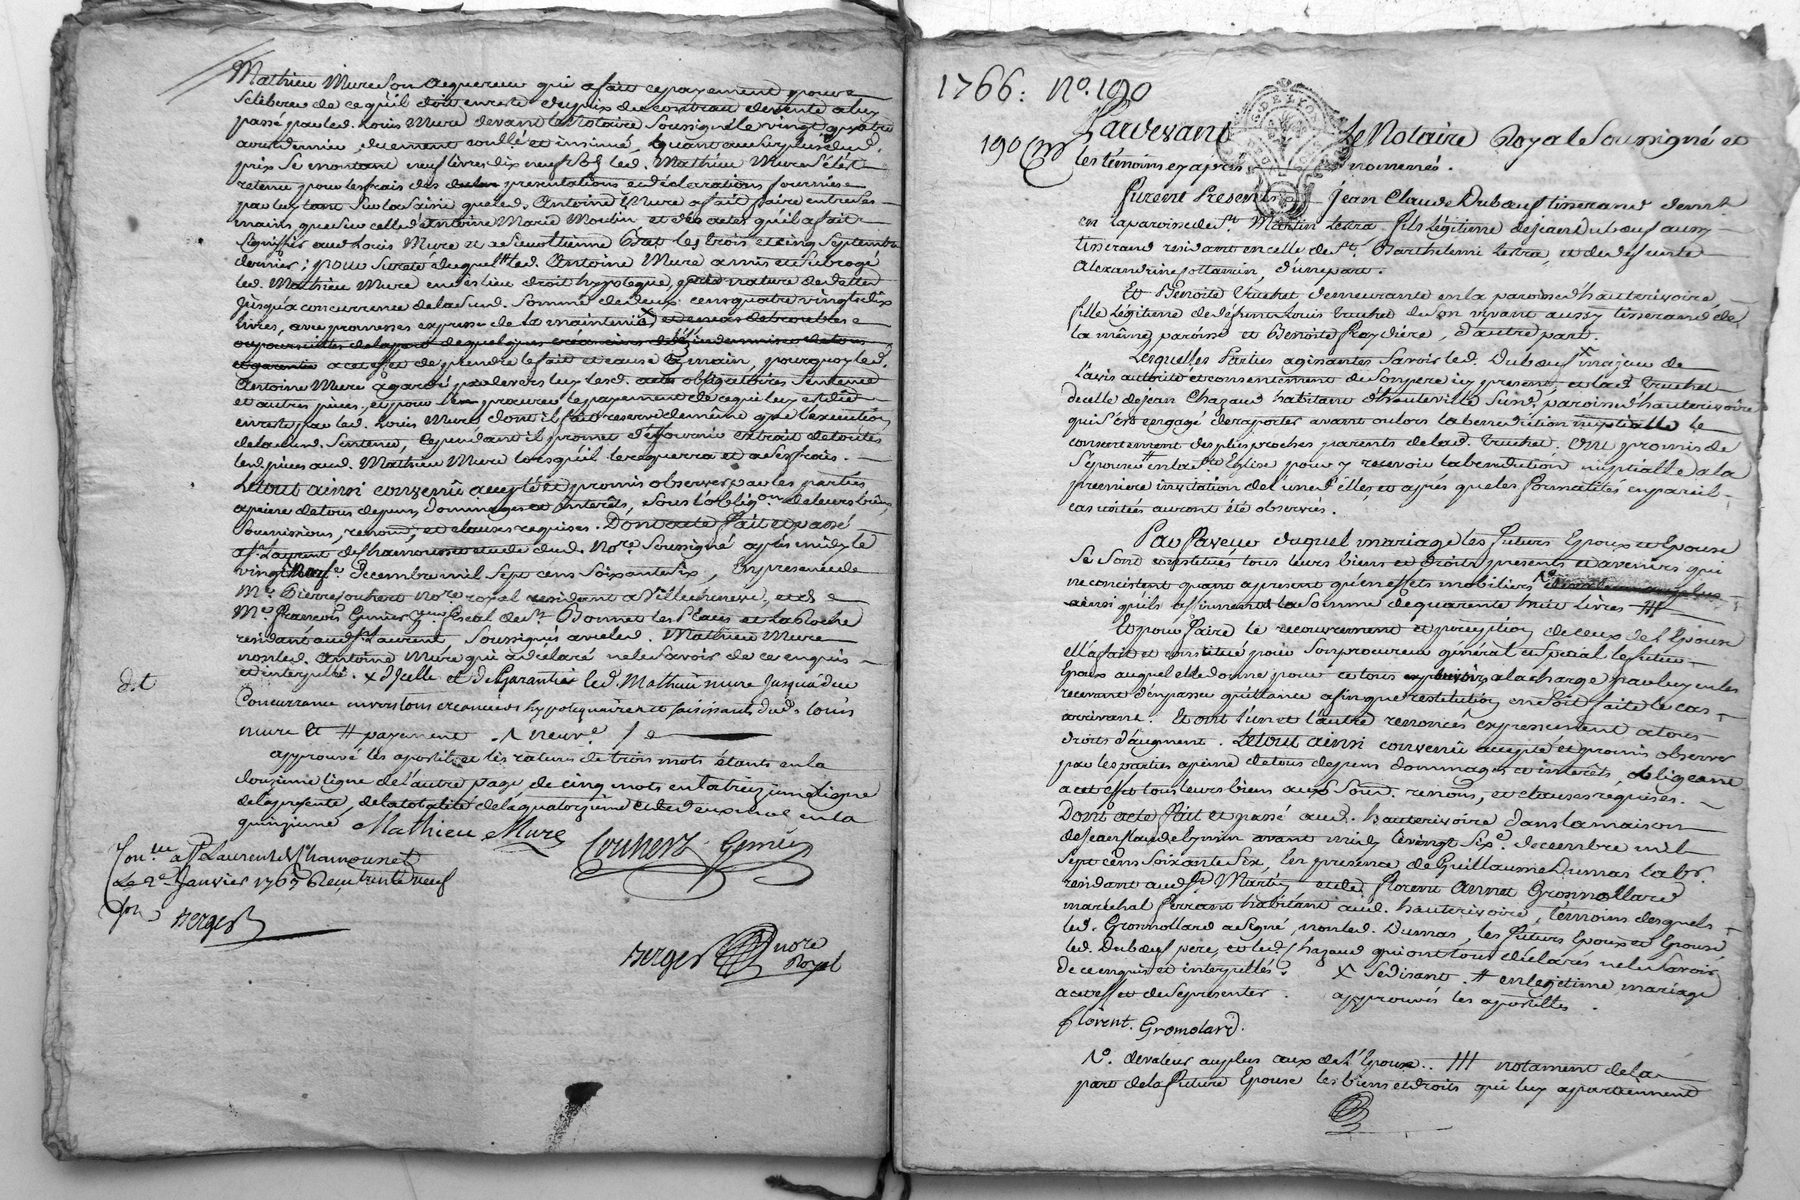 Mathieu Mure son acquereur qui a fait ce payement pour
se liberer de ce qu'il doit en reste du prix du contrat de vente a luy
passé par led. Louis Mure devant le Notaire Soussigné le vingt quatre
aout dernier, duement et insinué, quant au surplus dud.
prix se montant neuf livres dix neuf sols led. Mathieu Mure s'est
retenu pour les frais des presentations et declarations fournies
par luy tant sur la saisie que led. Antoine Mure a fait faire entre ses
mains que sur celle d'Antoine Marie Moulin et des actes qu'il a fait
signiffier aud. Louis Mure et a Etienne les trois et cinq septembre
dernier; pour sureté duquel led. Antoine Mure a mis et subrogé
led. Mathieu Mure en es lieu droit hypoteque, nature de dettes
jusqu'a concurrence de lasusd. somme de deux cens quatre vingt dix
livres, avec promesses expresse de la maintenir x et en cas de troubles
ou poursuittes de la part de quelques créanciers
et garentie a cet eff. et de prendre le fait et cause en main, pourquoy led.
Antoine Mure a gardé pardevers luy lesd. actes obligatoires sentence
et autres pieces, et pour procurer le payement de ce qui luy est dû
en reste par led. Louis Mure dont il fait reserve de même que l'execution
de lasusd. Sentence, cependant il promet de fournir extrait de toutes
lesd. pieces aud. Mathieu Mure lorsqu'il le requerra et a ses frais.
Le tout ainsi convenû accepté et promis observer par les parties
a peine de tous depens dommages et interêts, sous l'oblig.on de leurs biens
soumissions, renon.s, et clauses requises. Dont acte fait et passé
a St. Laurent de Chamousset etude dud. No.re Soussigné après midy le
vingt neuf e. Decembre mil sept cens soixante six, En presence de
M.e Pierre Couhert no.re royal residant a Villechenève, et de
M.e François Gimier fiscal de St. Bonnet les Places et la Roche
residant aud. St. Laurent Soussignés avec led. Mathieu Mure
non led. Antoine Mure qui a déclaré ne le savoir de ce enquis
et interpellé. x d'Jcelle et de Garantir led. Mathieu mure Jusqu'a due
d. t
Concurrance envers tous creanciers hypotequaires et saisissants dud. Louis
mure et # payement . neuv.e
approuvé les apostiles et les ratures de trois mots étants en la
douzieme ligne de l'autre page, de cinq mots en la treizieme ligne
de la presente, de la totalité de la quatorzieme et de deux mots en la
quinzieme Mathieu Mure Couhert Gimier
Con.lle a St Laurent de Chamousset
Le 2e Janvier 1767 Reçu trente neuf
sols Berger
Berger nore
Royal
1766: No. 190
190 Cm
Pardevant le Notaire Royal Soussigné et
les témoins cy après nommés.
Furent Presents Jean Claude Dubœuf tisserand demt.
en la paroisse de St. Martin Lestra fils légitime de Jean Dubœuf aussy
tisserand residant en celle de St. Barthelemi Lestra, et de defunte
Alexandrine, d'une part.
Et Benoite Truchet demeurante en la paroisse d'hauterivoire,
fille légitime de défunt Louis Truchet du en vivant aussy tisserand de
la même paroisse et Benoite, d'autre part.
Lesquelles Parties agissantes savoir led. Dubœuf x majeur de
l'avis autorité et consentement de son pere icy present, et lad. Truchet
de celle de Jean Chazaud habitant d'hauteville susd. paroisse d'hauterivoire
qui s'est engagé de raporter avant ou lors la benediction nuptialle le
consentement des plus proches parents de lad. Truchet. Ont promis de
s'épouser # en la Ste Eglise pour y recevoir la benediction nuptialle a la
premiere invitation de l'une d'elles, et après que les formalités en pareil
cas usitées auront été observées.
En Faveur duquel mariage les futurs Epoux et Epouse
se sont constitués tous leurs biens et droits presents et avenirs qui
ne consistent quant a present qu'en effets mobiliers
ainsi qu'ils affirment la somme de quarente huit livres ///
Et pour faire le recouvrement et perception de ceux de l'Epouse
elle a fait et constitué pour son procureur general et special le futur
Epoux auquel elle donne pour ce tous pouvoirs a la charge par luy en les
recevant d'en passer quittance afin que restitution en soit faite le cas
arrivant. Et ont l'un et l'autre renoncés expressement a tous
droits d'augment. Le tout ainsi convenû accepté et promis observer
par les parties a peine de tous depens dommages et interêts, obligeant
a cet eff. tous leurs biens aux soum. renons, et clauses requises.
Dont acte fait et passé aud. hauterivoire dans la maison
de Jean avant midy le vingt six e. decembre mil
sept cens soixante six, En presence de Guillaume Dumas labr.
residant aud. St. Martin, et de Florent Annet Gromollard
maréchal ferrant habitant aud. hauterivoire, témoins desquels
led. Gromollard a signé, non led. Dumas, les futurs Epoux et Epouse
led. Dubœuf pere, et led. Chazaud qui ont tous déclarés ne le savoir
de ce enquis et interpellés. x se disant # en legitime mariage
a cet eff. et de se presenter. approuvés les apostilles.
florent. Gromolard.
1o. de valeur au plus aux de l'Epoux. /// notament de la
part de la future Epouse les biens et droits qui luy apartiennent